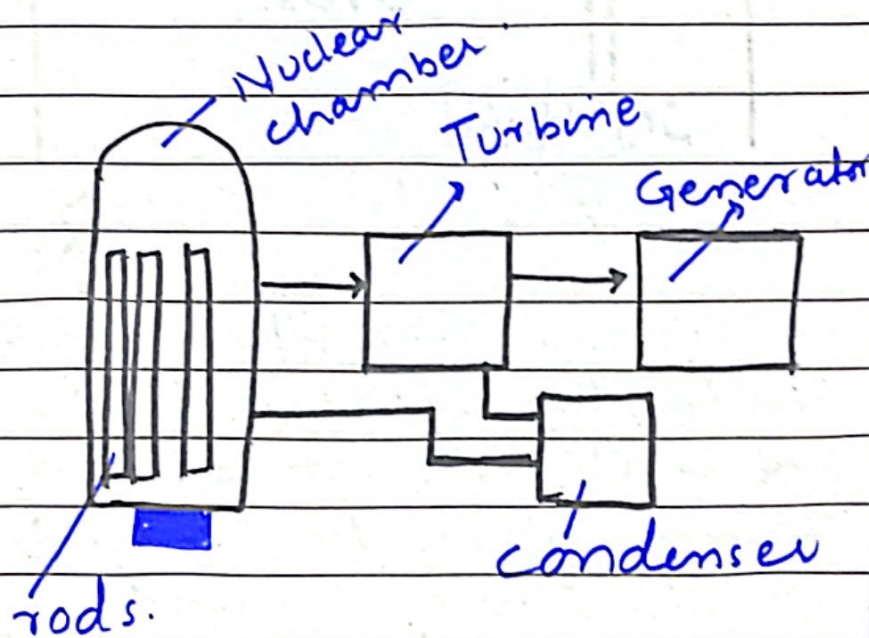 Nuclear
chamber.
Turbine
Generator
Condenser
rods.